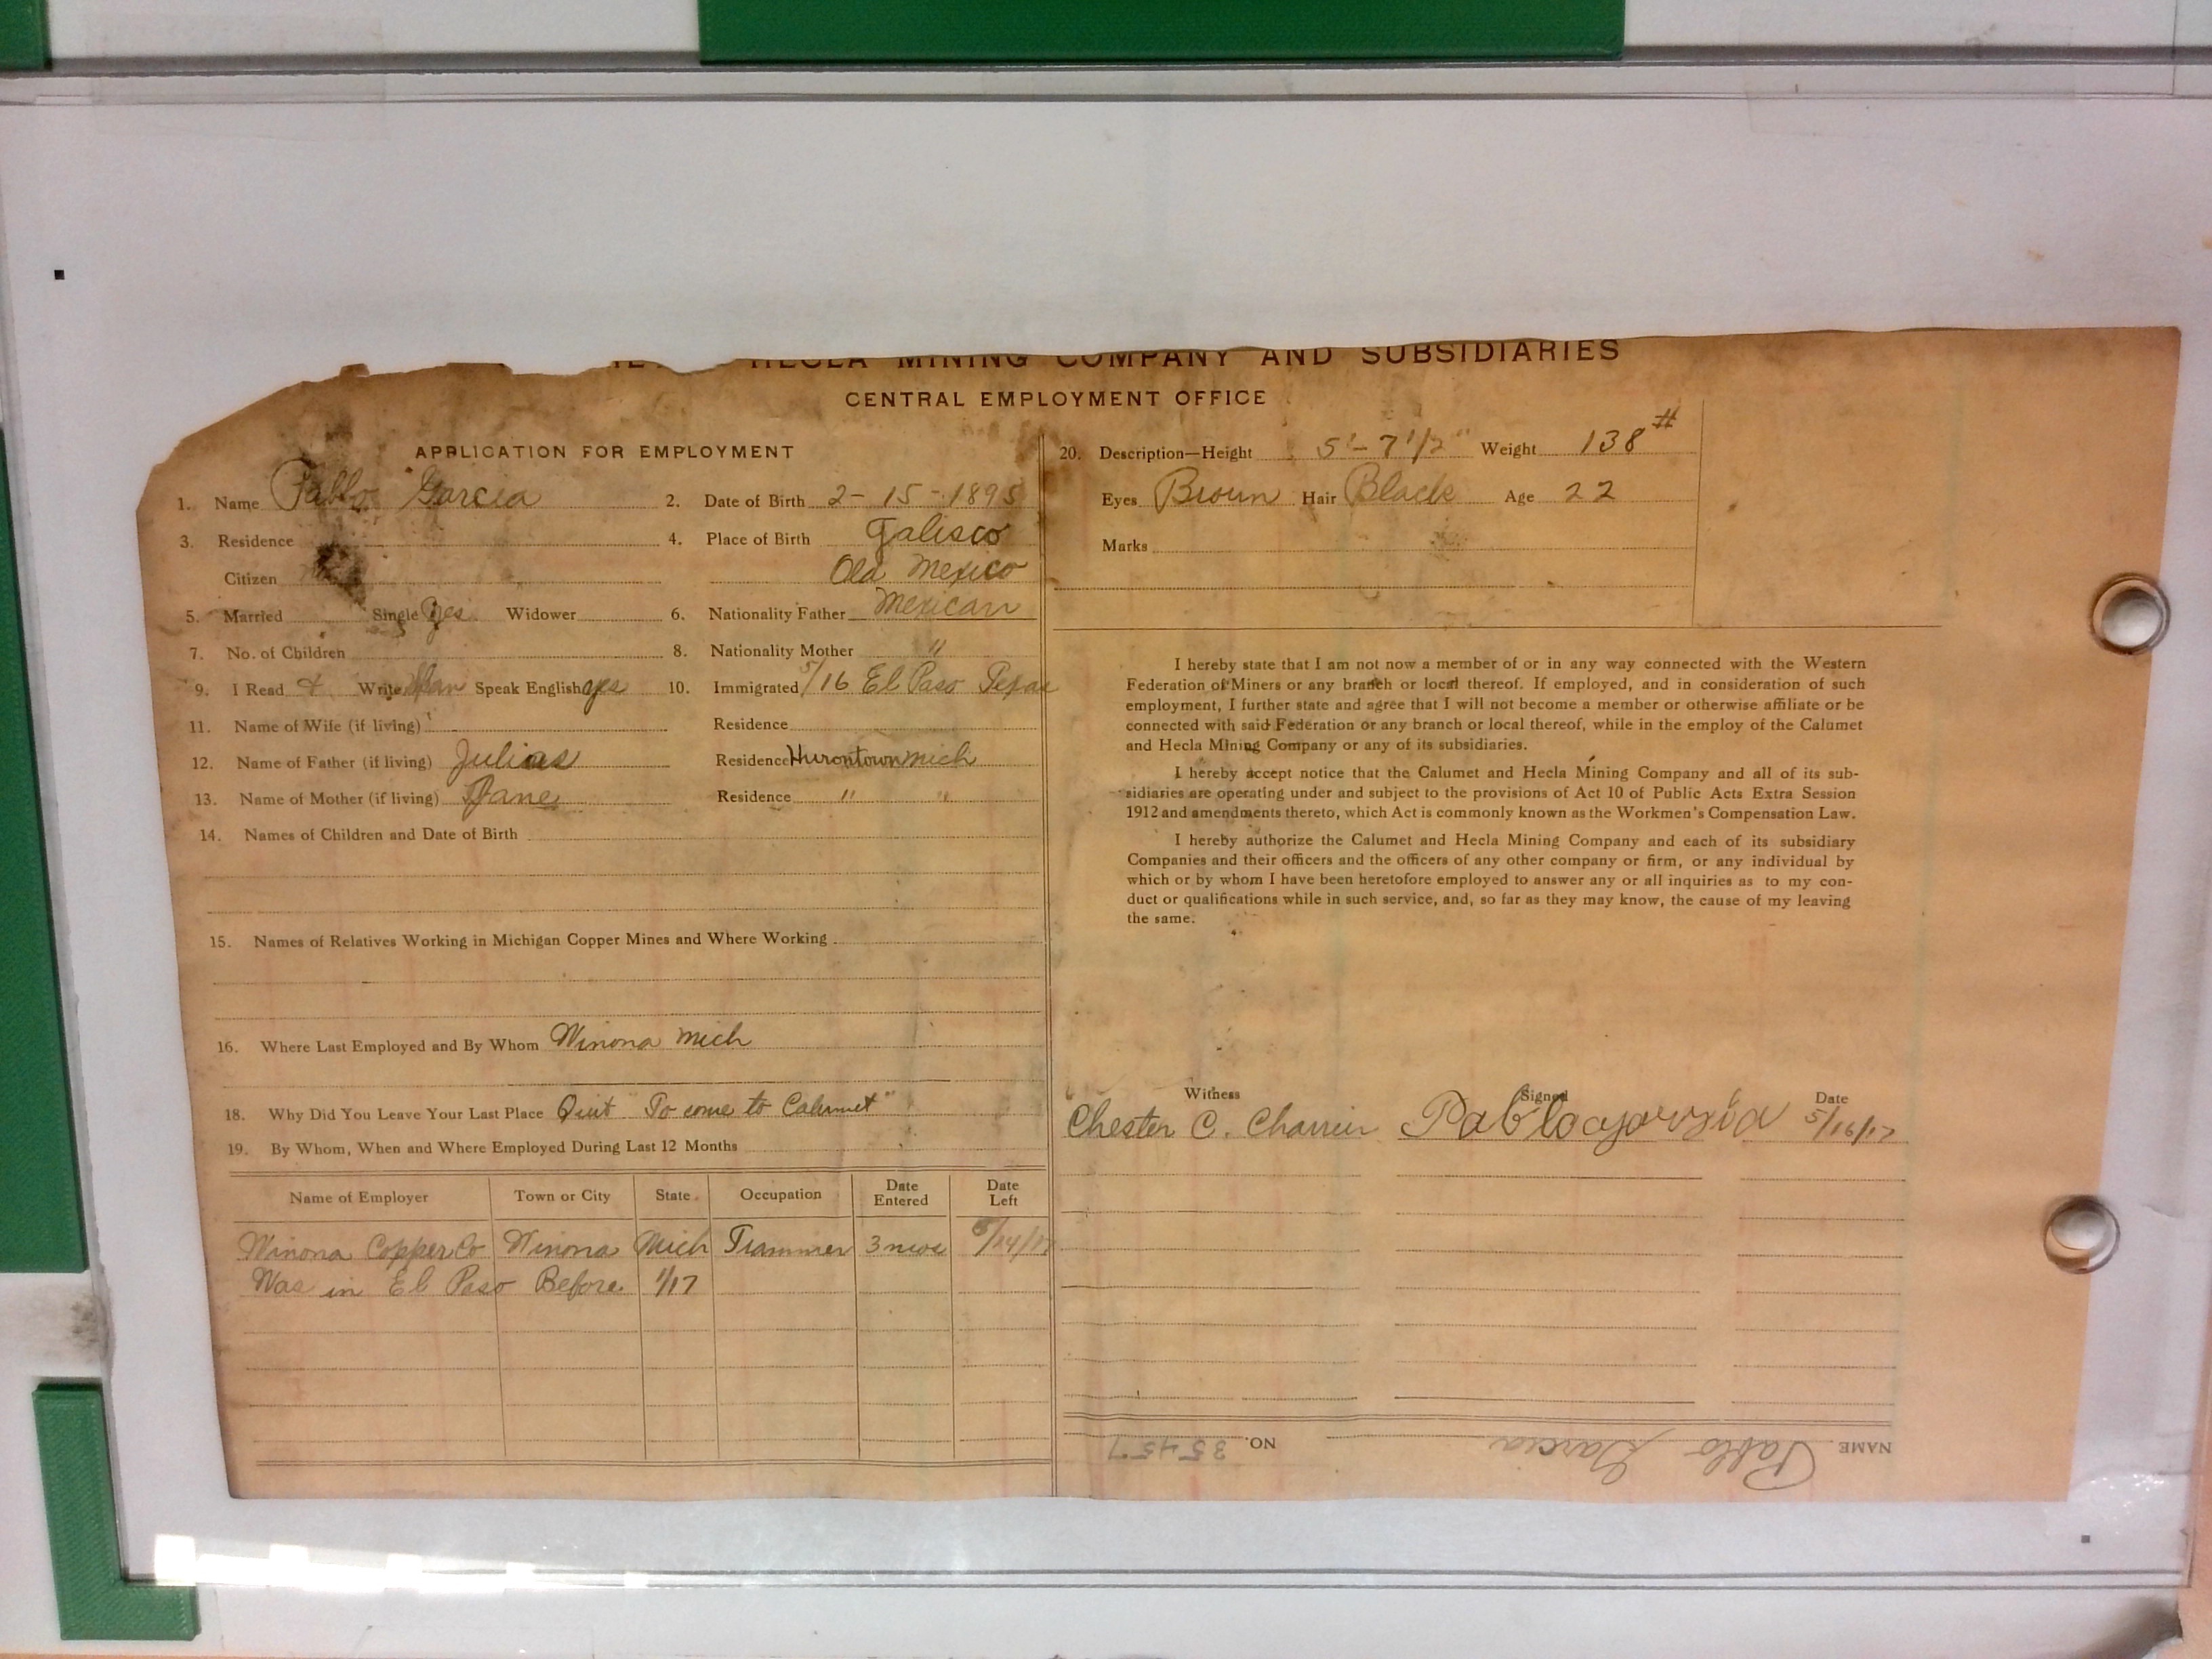 HECLA MINING COMPANY AND SUBSIDIARIES
CENTRAL EMPLOYMENT OFFICE
APPLICATION FOR EMPLOYMENT
1. Name Pablo Garcia 2. Date of Birth 2-15-1895
3. Residence 4. Place of Birth Jalisco
Citizen Old Mexico
5. Married Single Yes Widower 6. Nationality Father Mexican
7. No. of Children 8. Nationality Mother "
9. I Read & Write Speak English yes 10. Immigrated 5/16 El Paso Texas
11. Name of Wife (if living) Residence
12. Name of Father (if living) Julias Residence Hurontown Mich
13. Name of Mother (if living) Jane Residence " "
14. Names of Children and Date of Birth
15. Names of Relatives Working in Michigan Copper Mines and Where Working
16. Where Last Employed and By Whom Winona Mich
18. Why Did You Leave Your Last Place Quit "To come to Calumet"
19. By Whom, When and Where Employed During Last 12 Months
Name of Employer Town or City State Occupation Date Entered Date Left
Winona Copper Co Winona Mich Trammer 3 mos 5/14/17
Was in El Paso Before 1/17
20. Description—Height 5'-7 1/2" Weight 138#
Eyes Broun Hair Black Age 22
Marks
I hereby state that I am not now a member of or in any way connected with the Western
Federation of Miners or any branch or local thereof. If employed, and in consideration of such
employment, I further state and agree that I will not become a member or otherwise affiliate or be
connected with said Federation or any branch or local thereof, while in the employ of the Calumet
and Hecla Mining Company or any of its subsidiaries.
I hereby accept notice that the Calumet and Hecla Mining Company and all of its sub-
sidiaries are operating under and subject to the provisions of Act 10 of Public Acts Extra Session
1912 and amendments thereto, which Act is commonly known as the Workmen's Compensation Law.
I hereby authorize the Calumet and Hecla Mining Company and each of its subsidiary
Companies and their officers and the officers of any other company or firm, or any individual by
which or by whom I have been heretofore employed to answer any or all inquiries as to my con-
duct or qualifications while in such service, and, so far as they may know, the cause of my leaving
the same.
Witness Signed Date
Chester C. Pablo 5/16/17
NAME Pablo Garcia NO. 35457